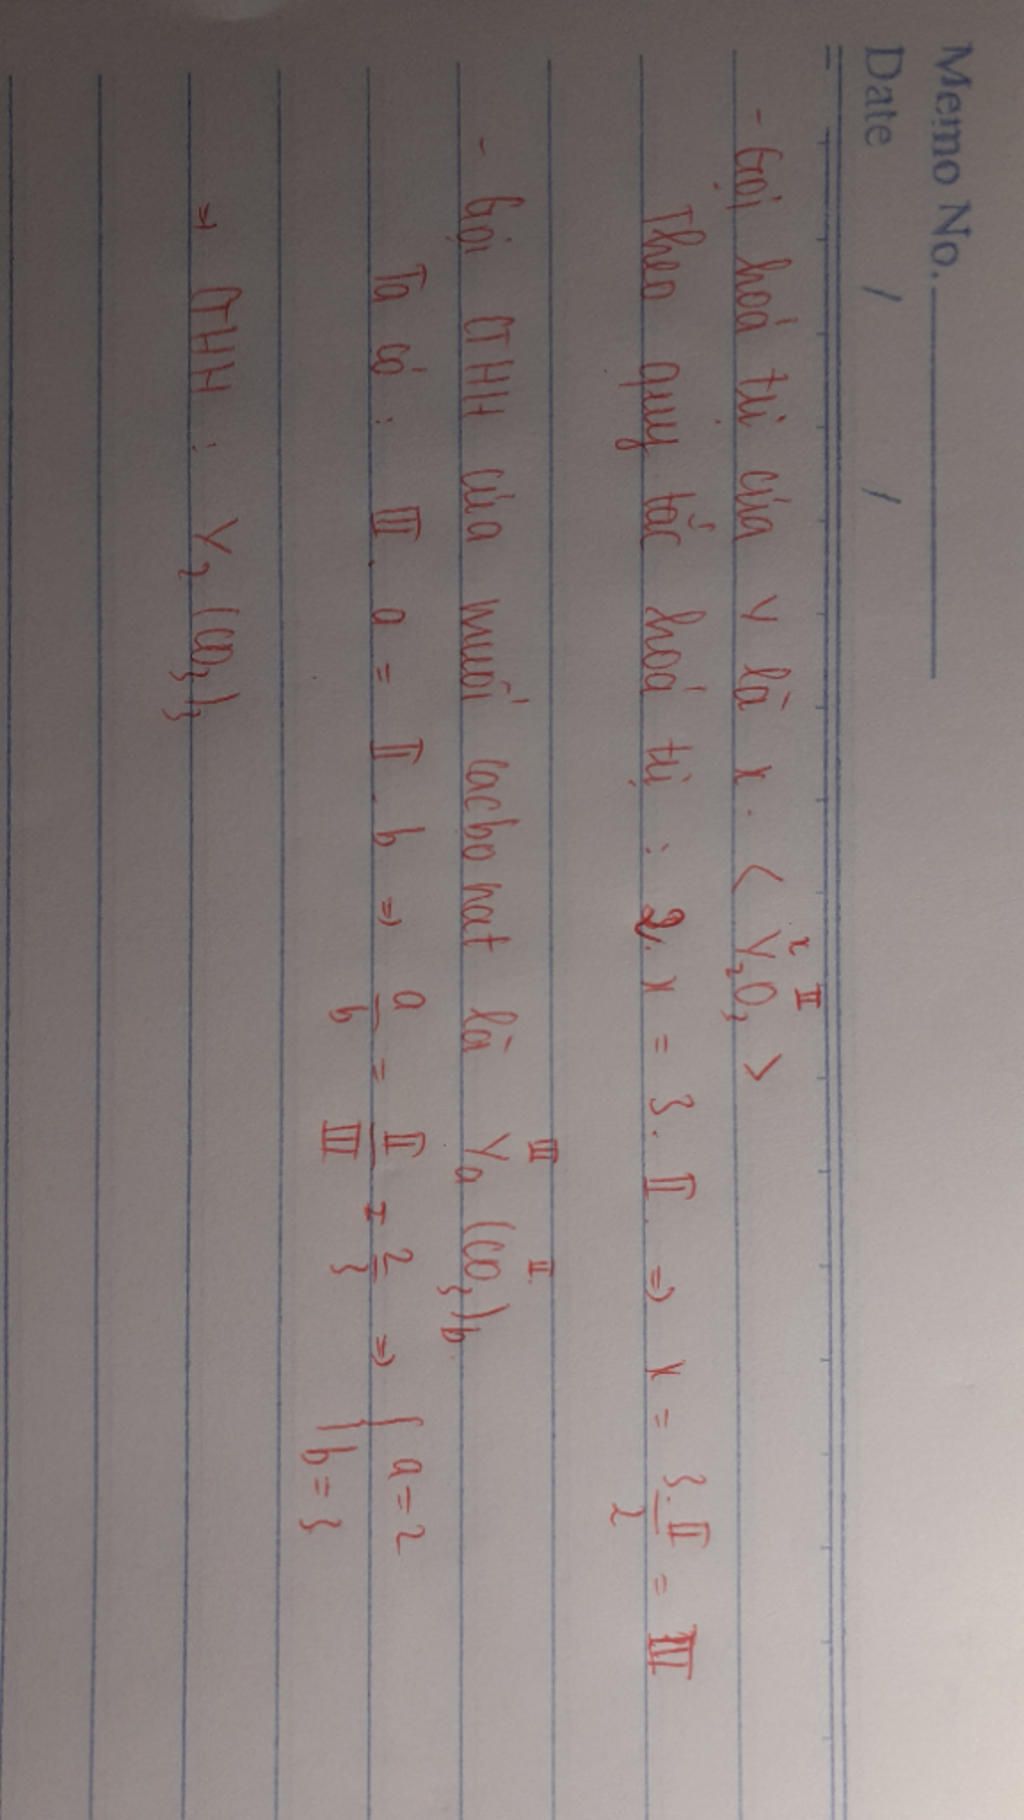 Memo No.
Date / /
- Gọi hoá trị của Y là x. < Y₂O₃ >
x II
Theo quy tắc hoá trị : 2.x = 3.II => x = 3.II/2 = III
- Gọi CTHH của muối cacbonat là Yₐ(CO₃)b.
III II
Ta có : III.a = II.b => a/b = II/III = 2/3 => { a=2
b=3
=> CTHH : Y₂(CO₃)₃